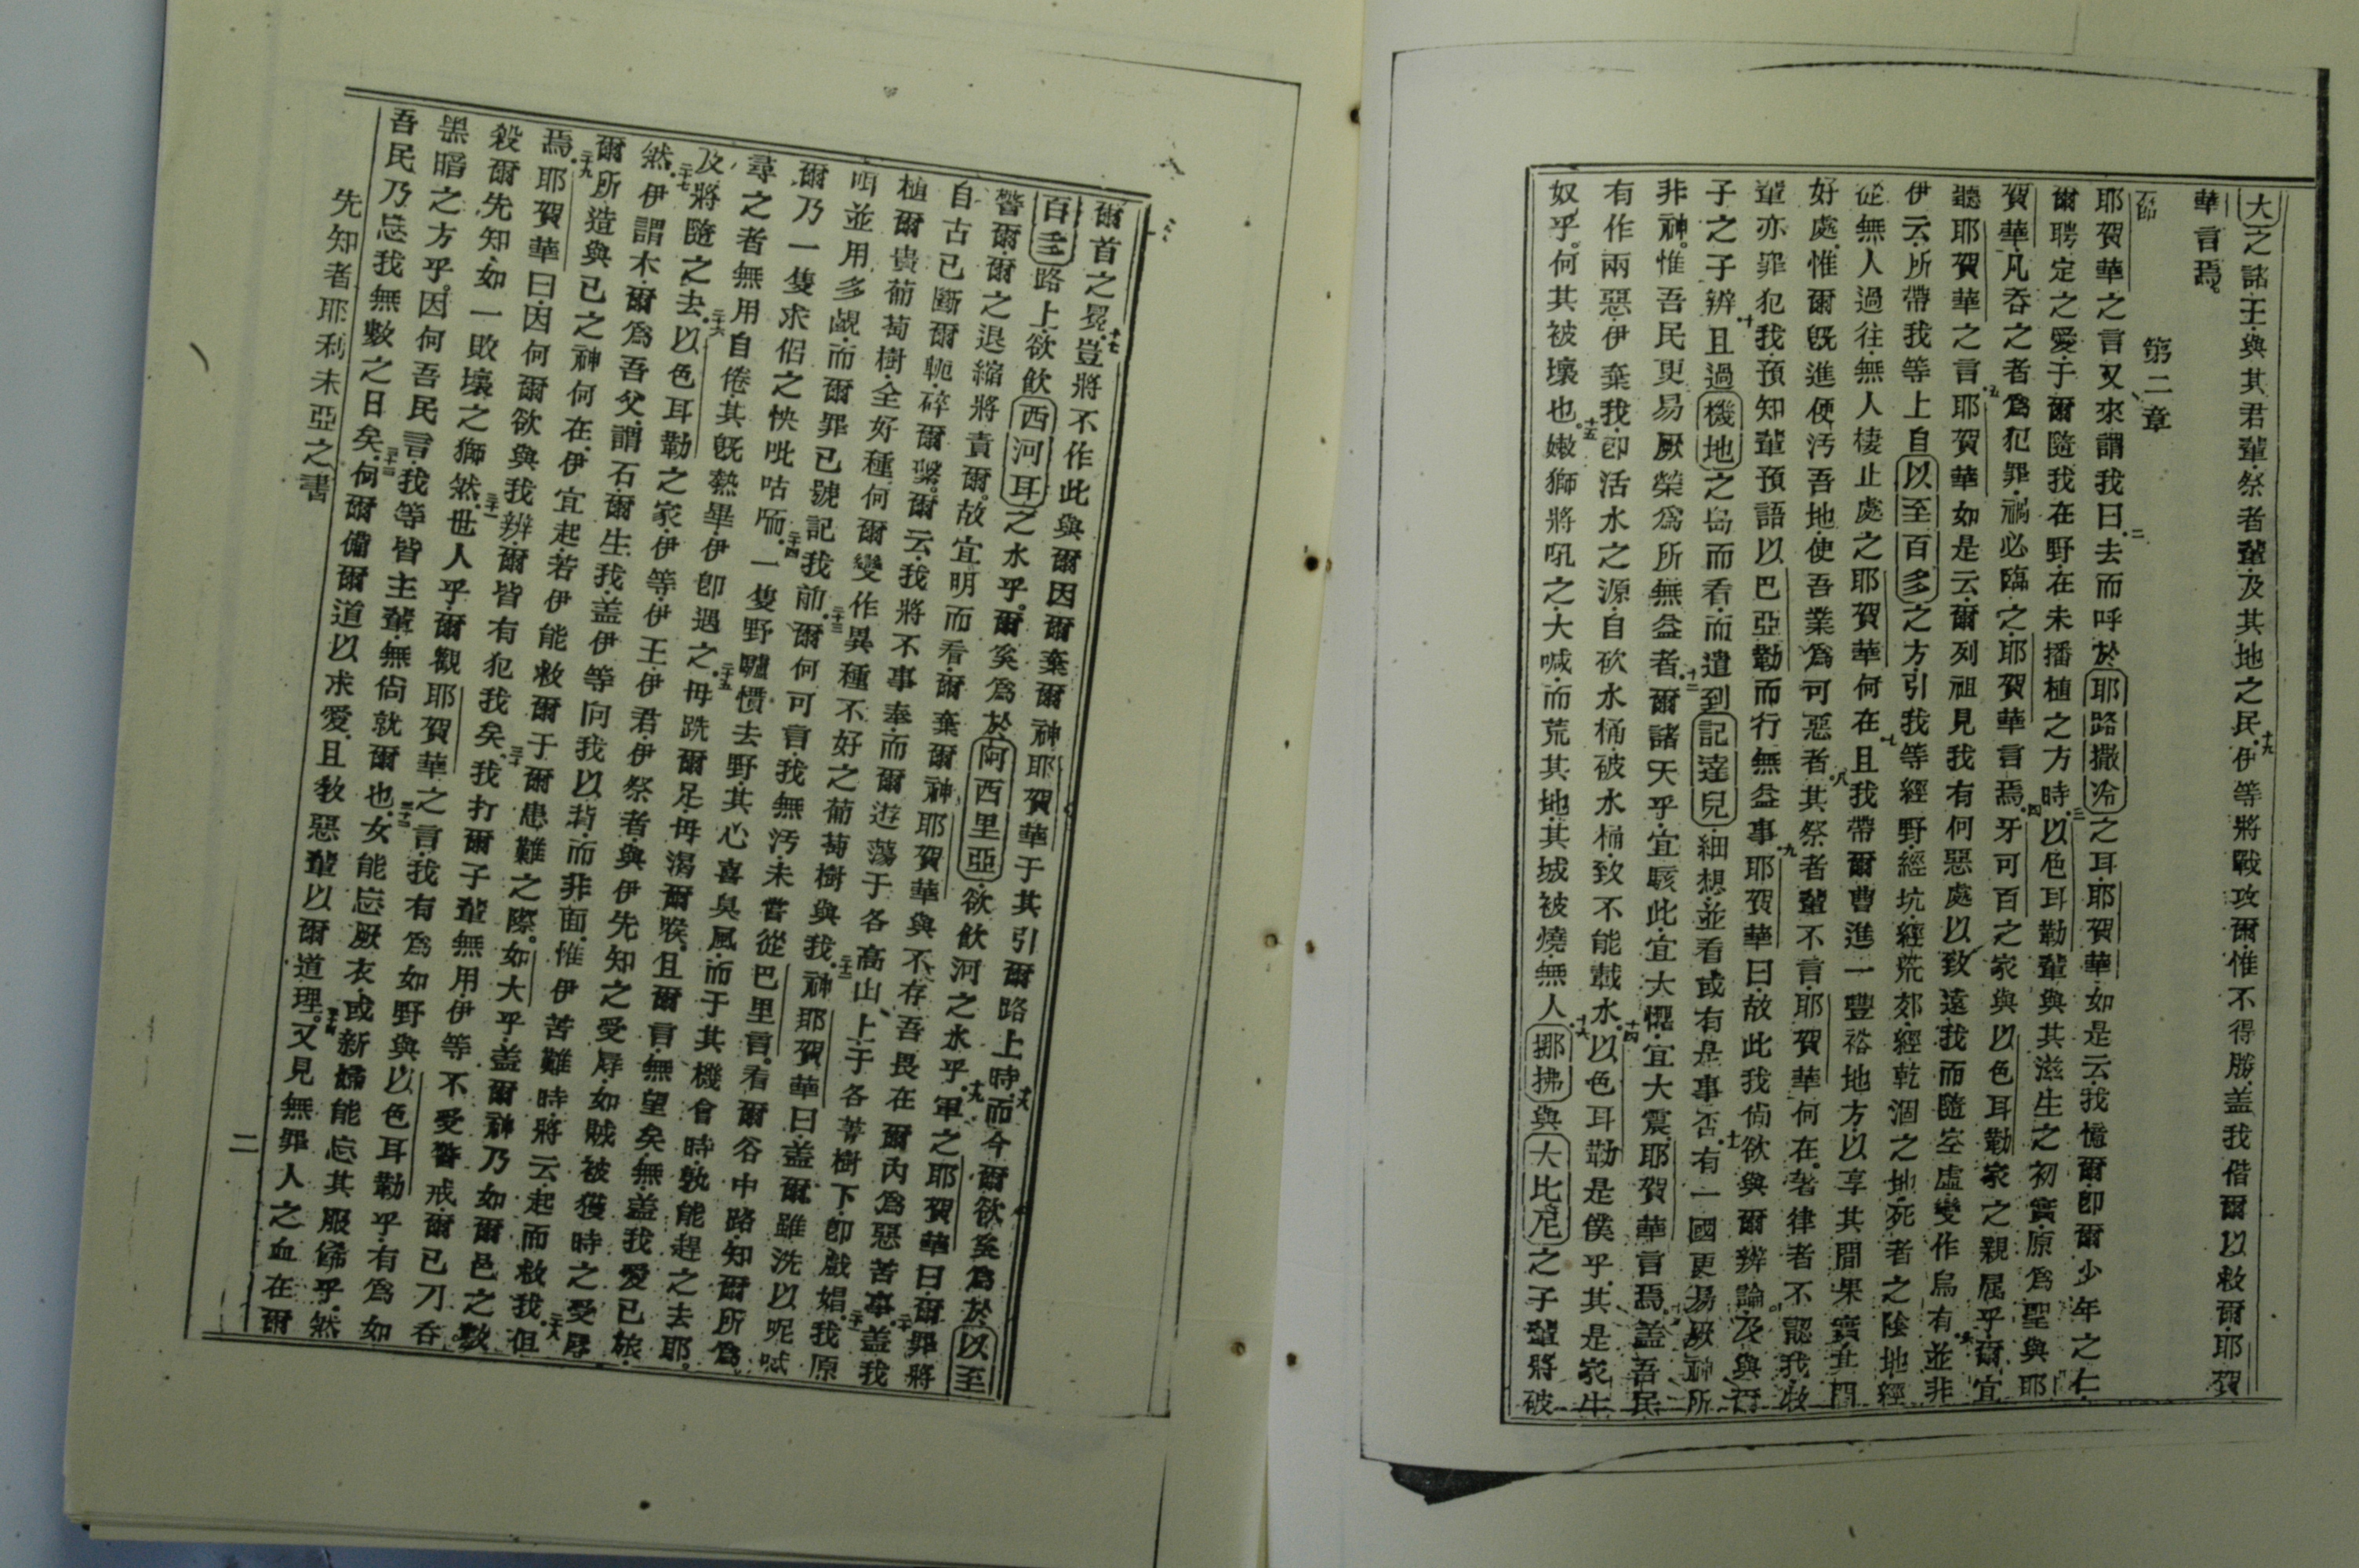 大之諸王與其君輩祭者輩及其地之民十九伊等將戰攻爾惟不得勝蓋我偕爾以救爾耶賀
華言焉。
第二章
一節耶賀華之言又來謂我曰二去而呼於耶路撒冷之耳耶賀華如是云我憶爾卽爾少年之仁
爾聘定之愛于爾隨我在野在未播植之方時三以色耳勒輩與其滋生之初實原爲聖與耶
賀華凡吞之者爲犯罪禍必臨之耶賀華言焉四牙可百之家與以色耳勒家之親屬乎爾宜
聽耶賀華之言五耶賀華如是云爾列祖見我有何惡處以致遠我而隨空虛變作烏有六並非
伊云所帶我等上自以至百多之方引我等經野經坑經荒郊經乾涸之地死者之陰地經
從無人過往無人棲止處之耶賀華何在七且我帶爾曹進一豐裕地方以享其間果實其間
好處惟爾旣進便汚吾地使吾業爲可惡者八其祭者輩不言耶賀華何在著律者不認我牧
輩亦罪犯我預知輩預語以巴亞勒而行無益事九耶賀華曰故此我尙欲與爾辨論及與爾
子之子辨十且過機地之島而看而遣到記達兒細想並看或有是事否十一有一國更易厥神所
非神惟吾民更易厥榮爲所無益者十二爾諸天乎宜駭此宜大懼宜大震耶賀華言焉蓋吾民
有作兩惡伊棄我卽活水之源自砍水桶破水桶致不能載水十四以色耳勒是僕乎其是家生
奴乎何其被壞也十五嫩獅將吼之大喊而荒其地其城被燒無人十六挪拂與大比尼之子輩將破
爾首之㝵十七豈將不作此與爾因爾棄爾神耶賀華于其引爾路上時十八而今爾欲奚爲於以至
百多路上欲飲西河耳之水乎爾奚爲於阿西里亞欲飲河之水乎十九軍之耶賀華曰爾罪將
警爾爾之退縮將責爾故宜明而看爾棄爾神耶賀華與不存吾畏在爾內爲惡苦事二十蓋我
自古已斷爾軛碎爾繫爾云我將不事奉而爾遊蕩于各高山上于各菁樹下卽戲娼二十一我原
植爾貴葡萄樹全好種何爾變作異種不好之葡萄樹與我二十二神耶賀華曰蓋爾雖洗以呢
咡並用多鹼而爾罪已號記我前二十三爾何可言我無汚未嘗從巴里言看爾谷中路知爾所爲
爾乃一隻求侶之怏吡咕㖇二十四一隻野驢慣去野其心喜臭風而于其機會時孰能趕之去耶
尋之者無用自倦其旣熱畢伊卽遇之二十五毋跣爾足毋渴爾喉且爾言無望矣無蓋我愛已旅
及將隨之去二十六以色耳勒之家伊等伊王伊君伊祭者與伊先知之受辱如賊被獲時之受辱
然二十七伊謂木爾爲吾父謂石爾生我蓋伊等向我以背而非面惟伊苦難時將云起而救我二十八但
爾所造與己之神何在伊宜起若伊能救爾于爾患難之際如大乎蓋爾神乃如爾邑之數
焉二十九耶賀華曰因何爾欲與我辨爾皆有犯我矣三十我打爾子輩無用伊等不受警戒爾己刀吞
殺爾先知如一敗壞之獅然三十一世人乎爾觀耶賀華之言我有爲如野與以色耳勒乎有爲如
黑暗之方乎因何吾民言我等皆主輩無尙就爾也三十二女能忘厥衣或新婦能忘其服佈乎然
吾民乃忘我無數之日矣三十三何爾備爾道以求愛且敎惡輩以爾道理三十四又見無罪人之血在爾
先知者耶利未亞之書
二